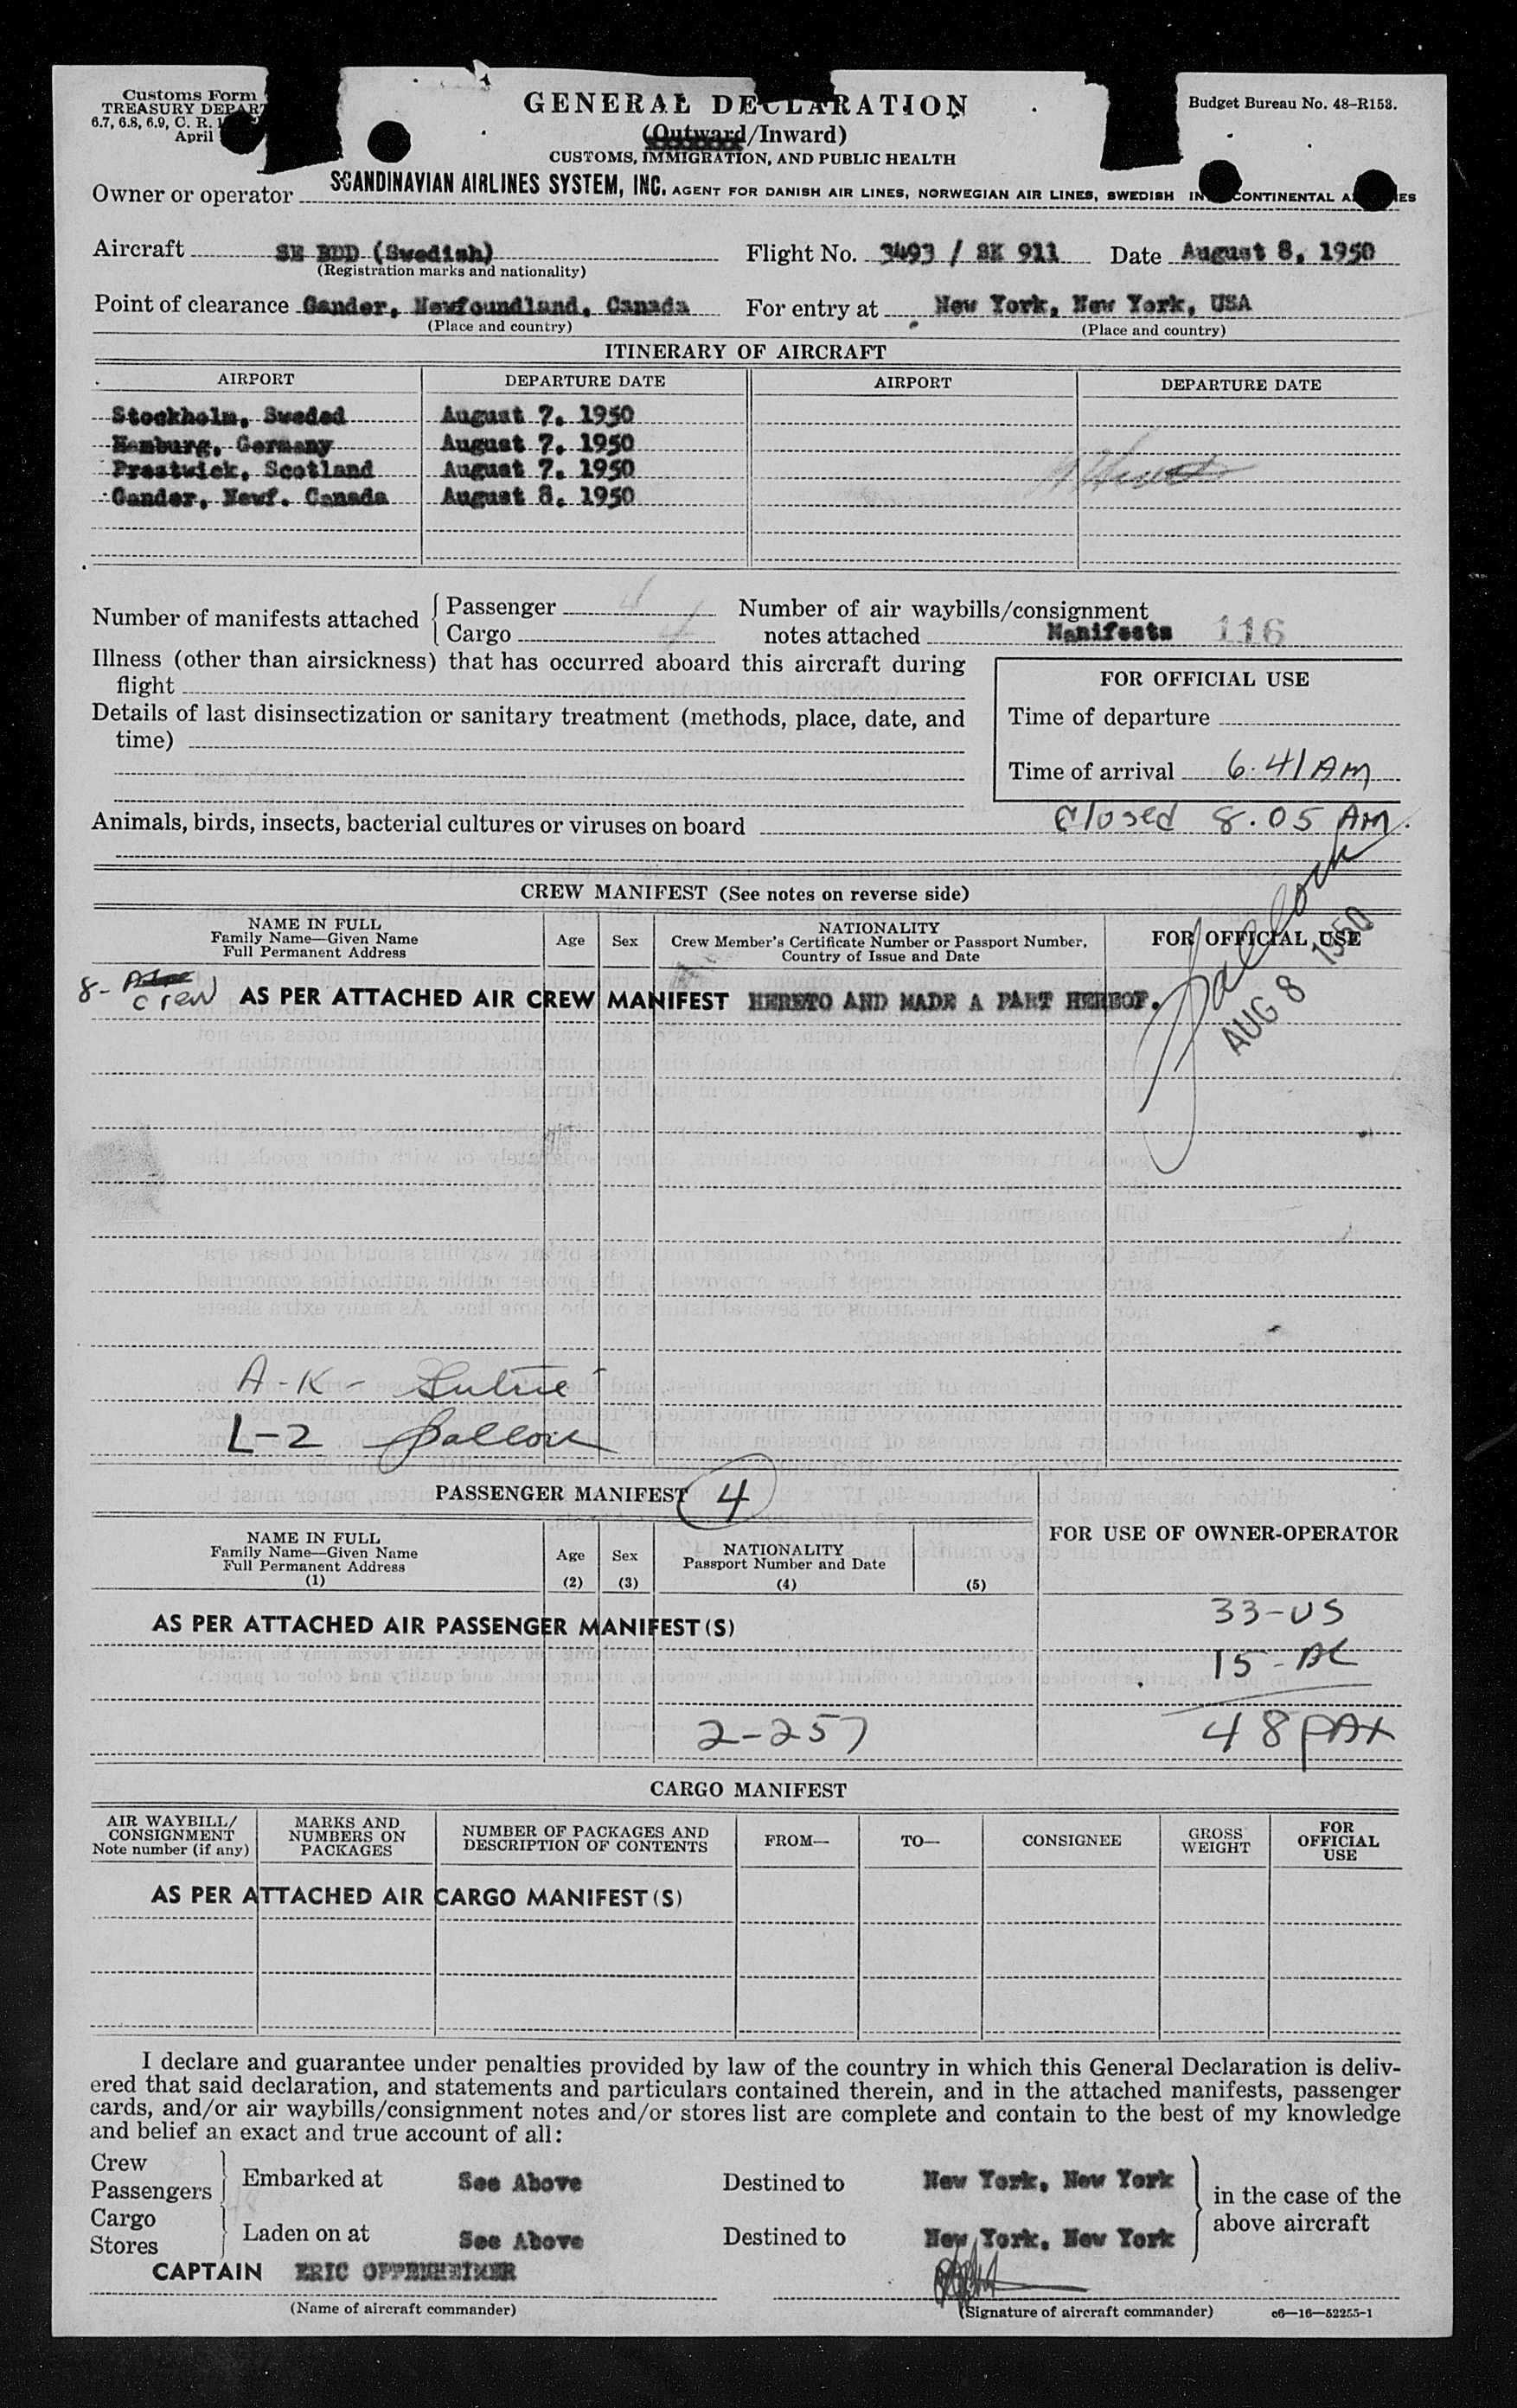 Customs Form
TREASURY DEPART
6.7, 6.8, 6.9, C. R.
April
GENERAL DECLARATION
(Outward/Inward)
CUSTOMS, IMMIGRATION, AND PUBLIC HEALTH
Budget Bureau No. 48-R153.
Owner or operator SCANDINAVIAN AIRLINES SYSTEM, INC. AGENT FOR DANISH AIR LINES, NORWEGIAN AIR LINES, SWEDISH IN CONTINENTAL A ES
Aircraft SE BDD (Swedish) Flight No. 3493 / SK 911 Date August 8, 1950
(Registration marks and nationality)
Point of clearance Gander, Newfoundland, Canada For entry at New York, New York, USA
(Place and country) (Place and country)
ITINERARY OF AIRCRAFT
AIRPORT DEPARTURE DATE AIRPORT DEPARTURE DATE
Stockholm, Sweded August 7, 1950
Hamburg, Germany August 7, 1950
Prestwick, Scotland August 7, 1950
Gander, Newf. Canada August 8, 1950
Number of manifests attached { Passenger 4 Number of air waybills/consignment
Cargo 4 notes attached Manifests 116
Illness (other than airsickness) that has occurred aboard this aircraft during
flight
Details of last disinsectization or sanitary treatment (methods, place, date, and
time)
FOR OFFICIAL USE
Time of departure
Time of arrival 6.41 AM
Closed 8.05 AM.
Animals, birds, insects, bacterial cultures or viruses on board
CREW MANIFEST (See notes on reverse side)
NAME IN FULL
Family Name—Given Name
Full Permanent Address
Age Sex
NATIONALITY
Crew Member's Certificate Number or Passport Number,
Country of Issue and Date
FOR OFFICIAL USE
AUG 8 1950
8- crew AS PER ATTACHED AIR CREW MANIFEST HERETO AND MADE A PART HEREOF.
A-K-
L-2
PASSENGER MANIFEST 4
NAME IN FULL
Family Name—Given Name
Full Permanent Address
(1)
Age
(2)
Sex
(3)
NATIONALITY
Passport Number and Date
(4) (5)
FOR USE OF OWNER-OPERATOR
AS PER ATTACHED AIR PASSENGER MANIFEST(S)
33-US
15-AL
2-257
48 PAX
CARGO MANIFEST
AIR WAYBILL/
CONSIGNMENT
Note number (if any)
MARKS AND
NUMBERS ON
PACKAGES
NUMBER OF PACKAGES AND
DESCRIPTION OF CONTENTS
FROM—
TO—
CONSIGNEE
GROSS
WEIGHT
FOR
OFFICIAL
USE
AS PER ATTACHED AIR CARGO MANIFEST(S)
I declare and guarantee under penalties provided by law of the country in which this General Declaration is deliv-
ered that said declaration, and statements and particulars contained therein, and in the attached manifests, passenger
cards, and/or air waybills/consignment notes and/or stores list are complete and contain to the best of my knowledge
and belief an exact and true account of all:
Crew
Passengers } Embarked at See Above Destined to New York, New York
Cargo
Stores } Laden on at See Above Destined to New York, New York
in the case of the
above aircraft
CAPTAIN ERIC OPPENHEIMER
(Name of aircraft commander) (Signature of aircraft commander) c6—16—52255-1